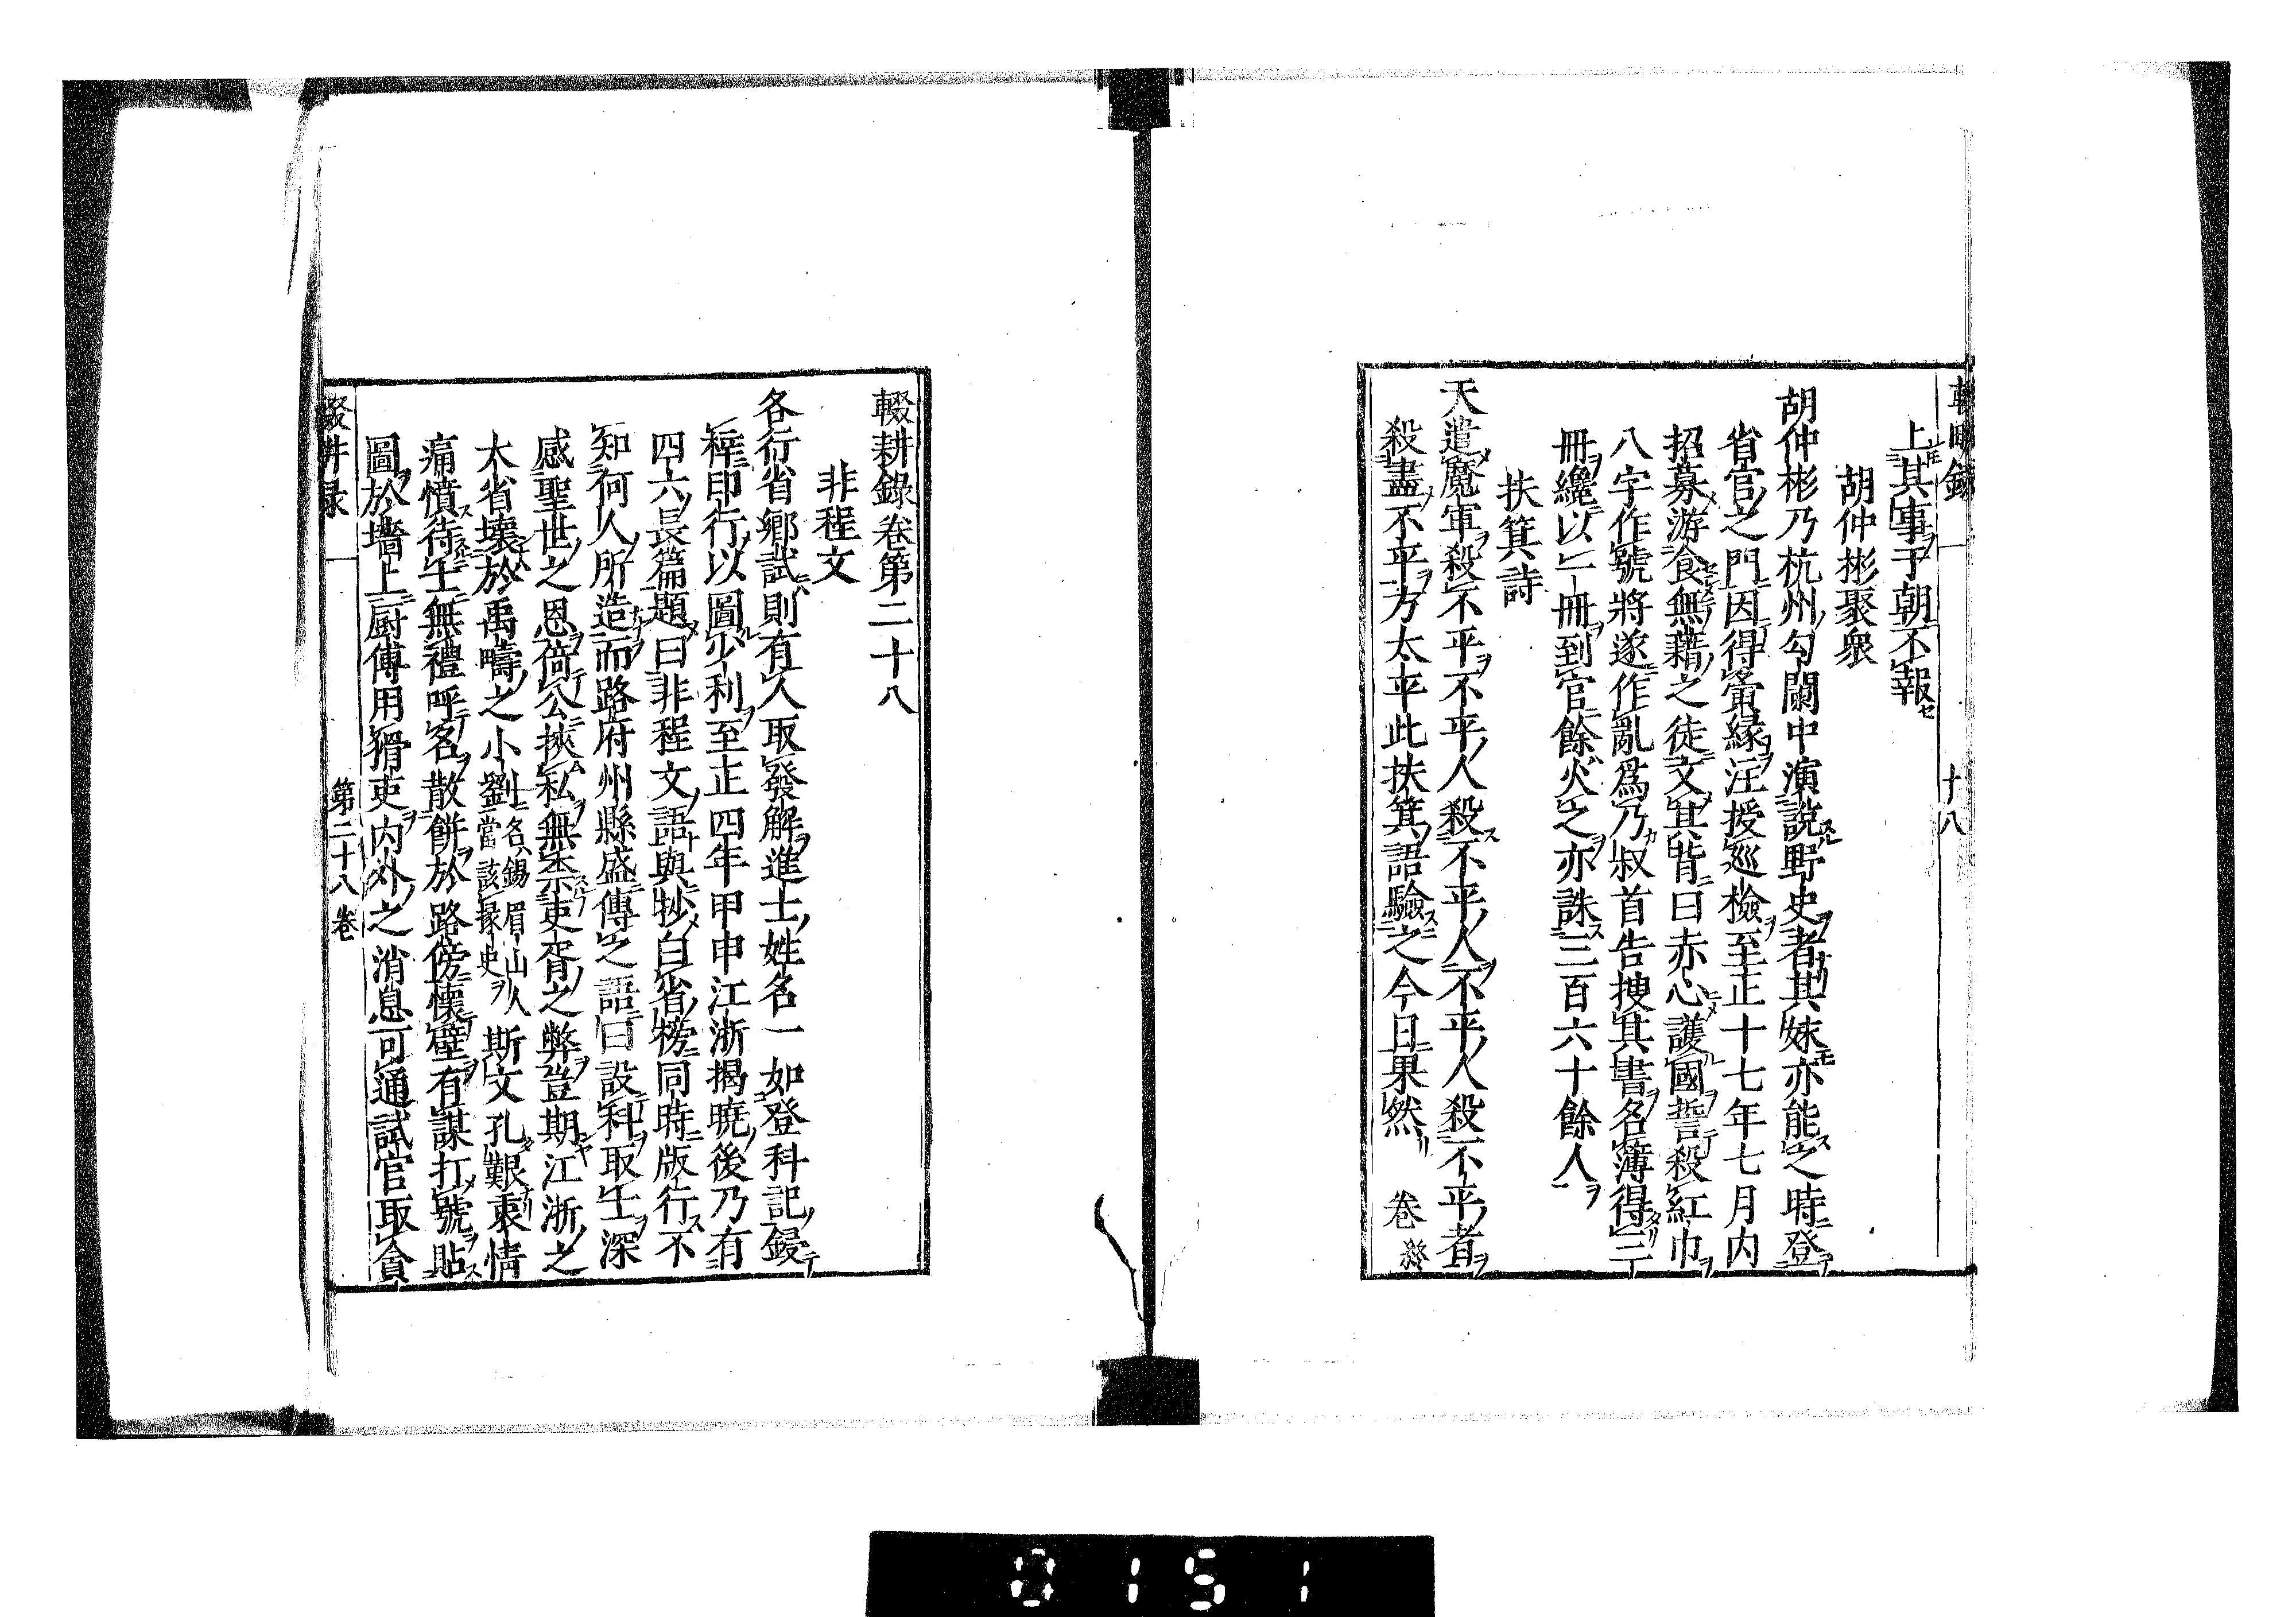 上其事于朝不報
胡仲彬聚衆
胡仲彬乃杭州勾闌中演說野史者其妹亦能之時登
省官之門因得夤緣注授巡檢至正十七年七月內
招募游食無藉之徒文其背曰赤心護國誓殺紅巾
八字作號將遂作亂爲乃叔首告搜其書名簿得三
冊纔以一冊到官餘火之亦誅三百六十餘人
扶箕詩
天遣魔軍殺不平不平人殺不平人不平人殺不平者
殺盡不平方太平此扶箕語驗之今日果然 卷終
十八
輟耕錄卷第二十八
非程文
各行省鄉試則有人取發解進士姓名一如登科記鋟
梓印行以圖少利至正四年甲申江浙揭曉後乃有
四六長篇題曰非程文語與抄白省榜同時版行不
知何人所造而路府州縣盛傳之語曰設科取士深
感聖世之恩荷公挾私無柰吏胥之弊豈期江浙之
大省壞於禹疇之小劉名錫眉山人當該掾史斯文孔艱衷情
痛憤待士無禮呼客散餅於路傍懷璧有謀打號貼
圖於墻上厨傳用猾吏內外之消息可通試官取貪
第二十八卷
0151